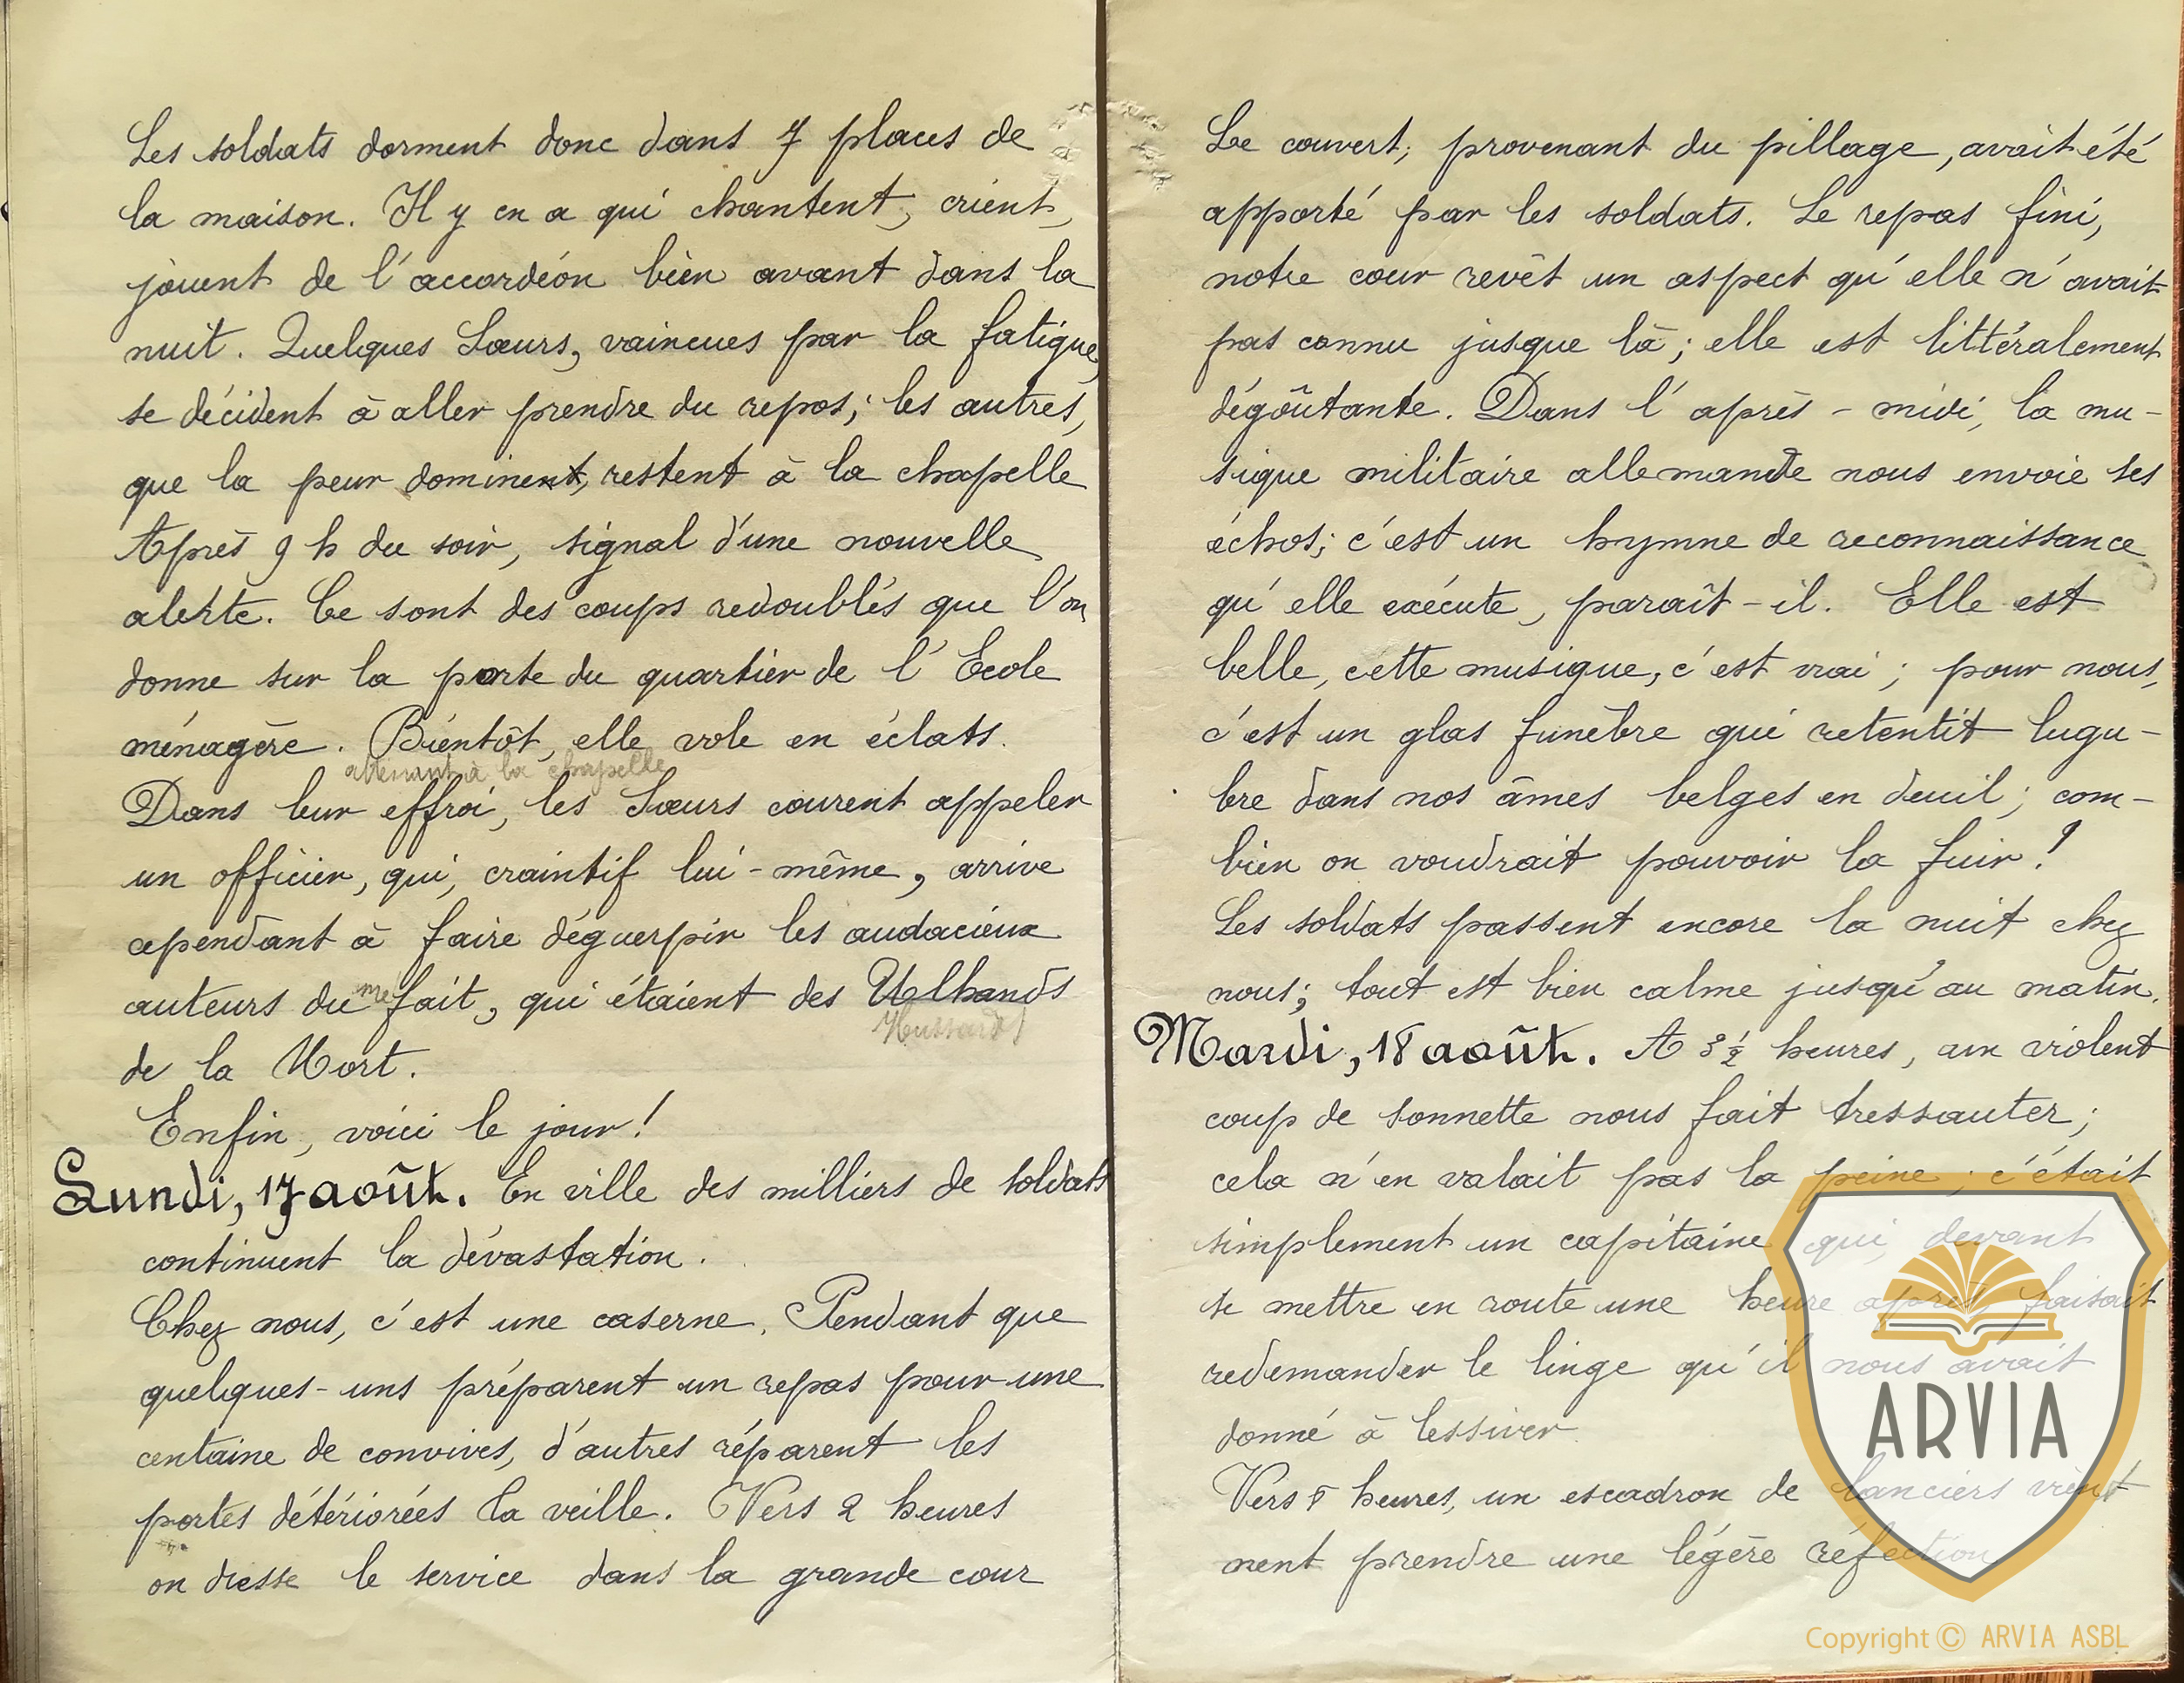 Les soldats dorment donc dans 7 places de
la maison. Il y en a qui chantent, crient,
jouent de l'accordéon bien avant dans la
nuit. Quelques Sœurs, vaincues par la fatigue,
se décident à aller prendre du repos; les autres,
que la peur dominent, restent à la chapelle
Après 9 h du soir, signal d'une nouvelle
alerte. Ce sont des coups redoublés que l'on
donne sur la porte du quartier de l'Ecole
ménagère. Bientôt, elle vole en éclats.
attenant à la chapelle
Dans leur effroi, les Sœurs courent appeler
un officier, qui, craintif lui-même, arrive
cependant à faire déguerpir les audacieux
auteurs du me fait, qui étaient des Ulhands
Hussards
de la Mort.
Enfin, voici le jour!
Lundi, 17 août. En ville des milliers de soldats
continuent la dévastation.
Chez nous, c'est une caserne. Pendant que
quelques-uns préparent un repas pour une
centaine de convives, d'autres réparent les
portes détériorées la veille. Vers 2 heures
on dresse le service dans la grande cour
Le couvert, provenant du pillage, avait été
apporté par les soldats. Le repas fini,
notre cour revêt un aspect qu'elle n'avait
pas connu jusque là; elle est littéralement
dégoûtante. Dans l'après-midi, la mu-
sique militaire allemande nous envoie ses
échos; c'est un hymne de reconnaissance
qu'elle exécute, paraît-il. Elle est
belle, cette musique, c'est vrai; pour nous,
c'est un glas funèbre qui retentit lugu-
bre dans nos âmes belges en deuil; com-
bien on voudrait pouvoir la fuir!
Les soldats passent encore la nuit chez
nous; tout est bien calme jusqu'au matin.
Mardi, 18 août. A 3 ½ heures, un violent
coup de sonnette nous fait tressauter;
cela n'en valait pas la peine; c'était
simplement un capitaine qui, devant
se mettre en route une heure après, faisait
redemander le linge qu'il nous avait
donné à lessiver.
Vers heures, un escadron de lanciers vient
nent prendre une légère réfection
ARVIA
Copyright © ARVIA ASBL